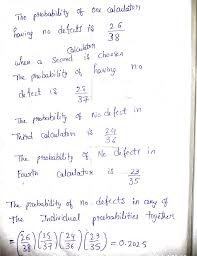 The probability of one calculator
having no defects is 26/38
calculator
when a second is choosen
The probability of having no
defect is 25/37
The probability of No defect in
Third calculator is 24/36
The probability of No defect in
Fourth calculator is 23/35
The probability of no defects in any of
the Individual probabilities together
= (26/38)(25/37)(24/36)(23/35) = 0.2025